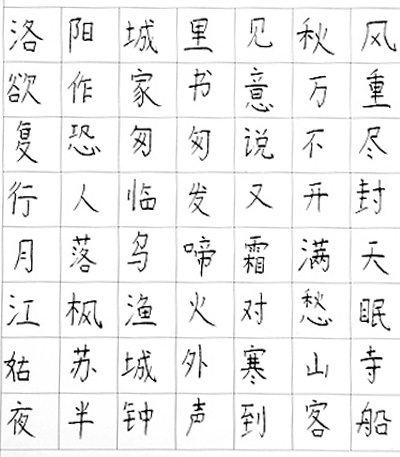 洛阳城里见秋风
欲作家书意万重
复恐匆匆说不尽
行人临发又开封
月落乌啼霜满天
江枫渔火对愁眠
姑苏城外寒山寺
夜半钟声到客船